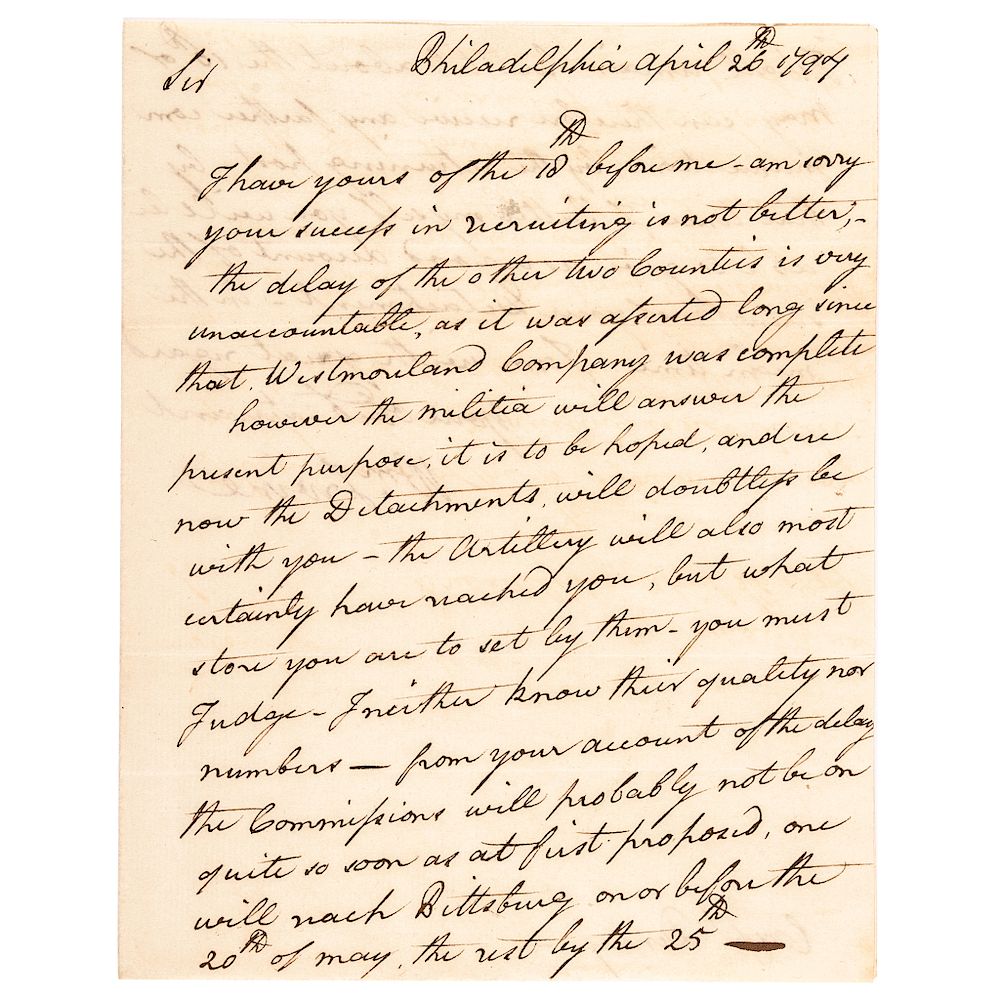 Philadelphia april 26th 1794
Sir
I have yours of the 18th before me - am sorry
your success in recruiting is not better, -
the delay of the other two Counties is very
unaccountable, as it was asserted long since
that Westmoreland Company was complete
however the militia will answer the
present purpose, it is to be hoped, and ere
now the Detachments, will doubtless be
with you - the Artillery will also most
certainly have reached you, but what
store you are to set by them - you must
Judge - I neither know their quality nor
numbers — from your account of the delay
the Commissions will probably not be on
quite so soon as at first proposed, one
will reach Pittsburg on or before the
20th of may, the rest by the 25th —